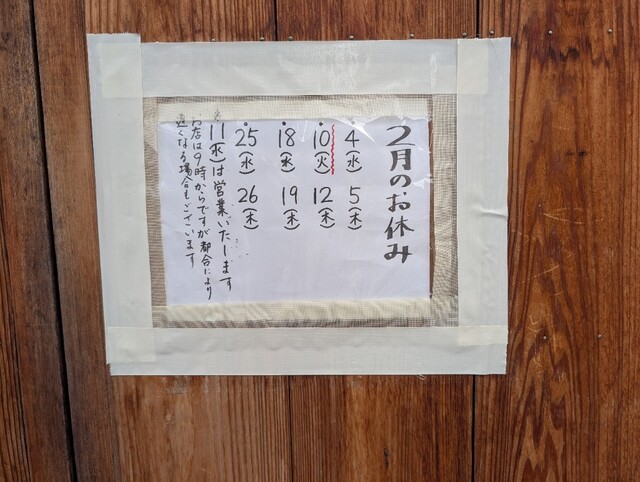 2月のお休み
4(水) 5(木)
10(火) 12(木)
18(水) 19(木)
25(水) 26(木)
11(水)は営業いたします
お店は9時からですが都合により
遅くなる場合もございます